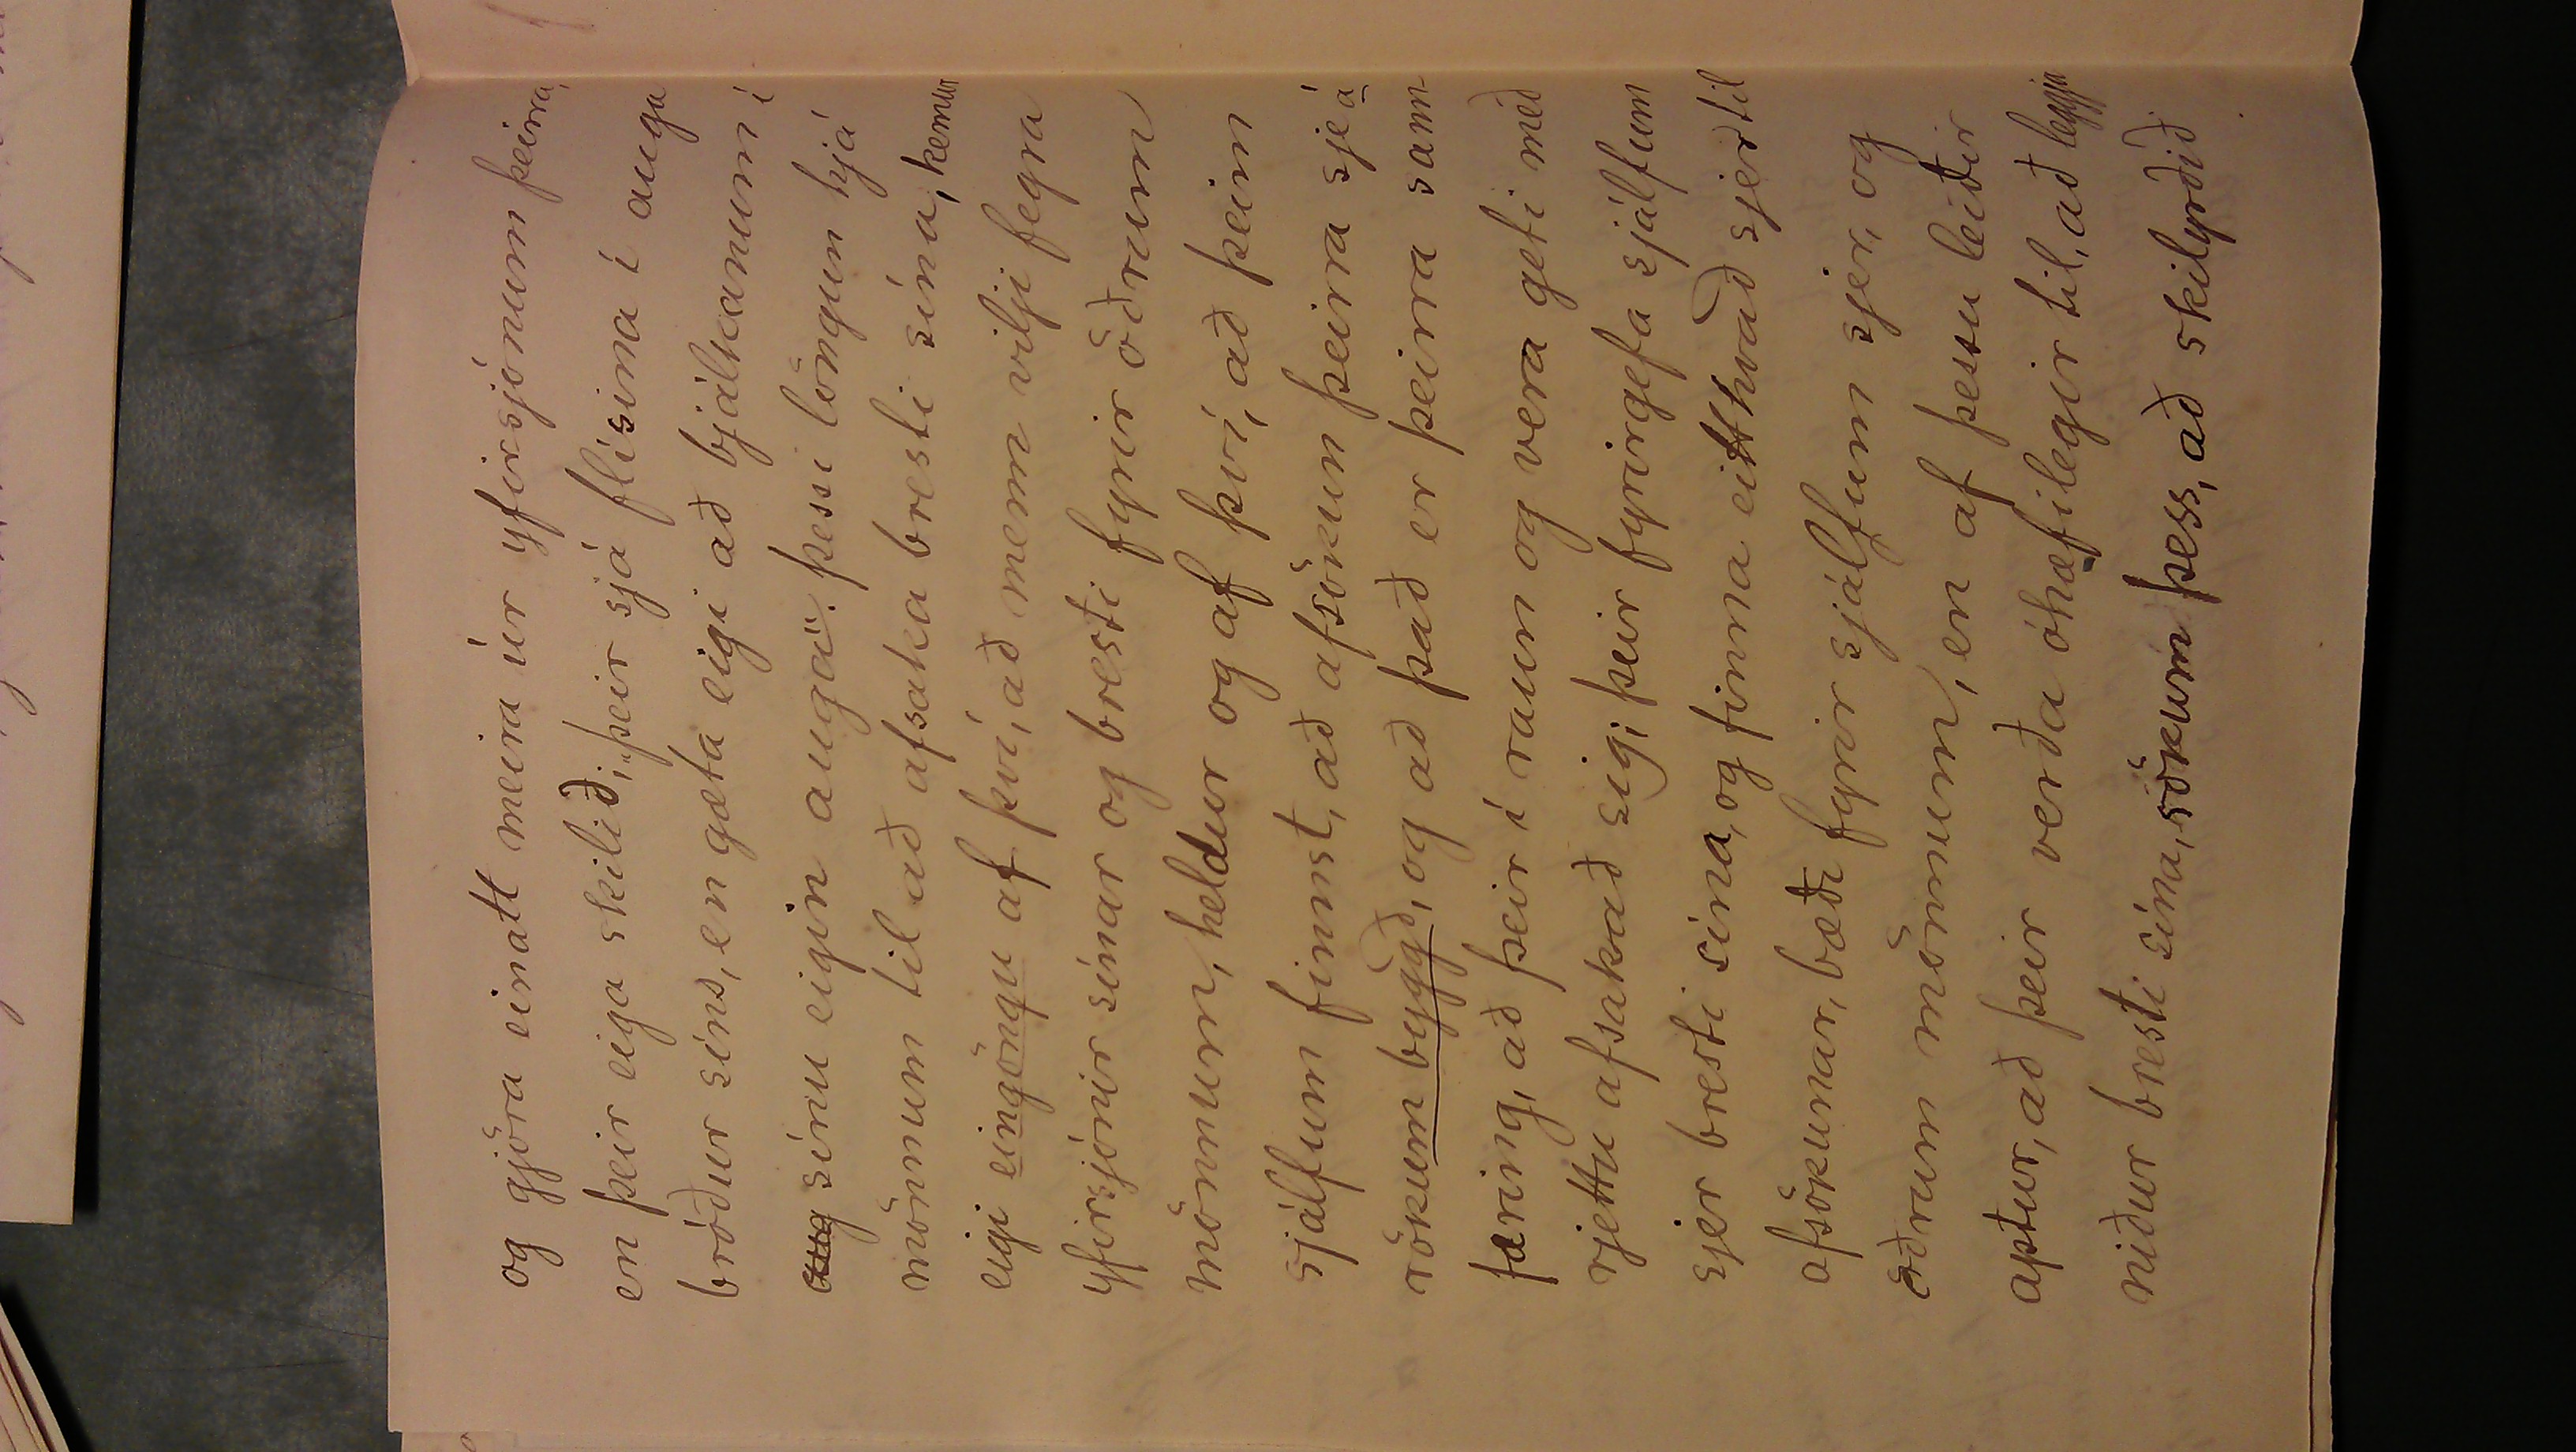 og gjöra einatt meira úr yfirsjónum þeirra,
en þeir eiga skilið; „þeir sjá flísina í auga
bróður síns, en gæta eigi að bjálkanum í
sínu eigin auga“. Þessi löngun hjá
mönnum til að afsaka bresti sína, kemur
eigi eingöngu af því, að menn vilji fegra
yfirsjónir sínar og bresti fyrir öðrum
mönnum, heldur og af því, að þeim
sjálfum finnst, að afsökun þeirra sje á
rökum byggð, og að það er þeirra sann
færing, að þeir í raun og vera geti með
rjettu afsakað sig; þeir fyrirgefa sjálfum
sjer bresti sína, og finna eitthvað sjer til
afsökunar, bæði fyrir sjálfum sjer, og
öðrum mönnum, en af þessu leiðir
aptur, að þeir verða óhæfilegir til, að leggja
niður bresti sína, sökum þess, að skilyrðið